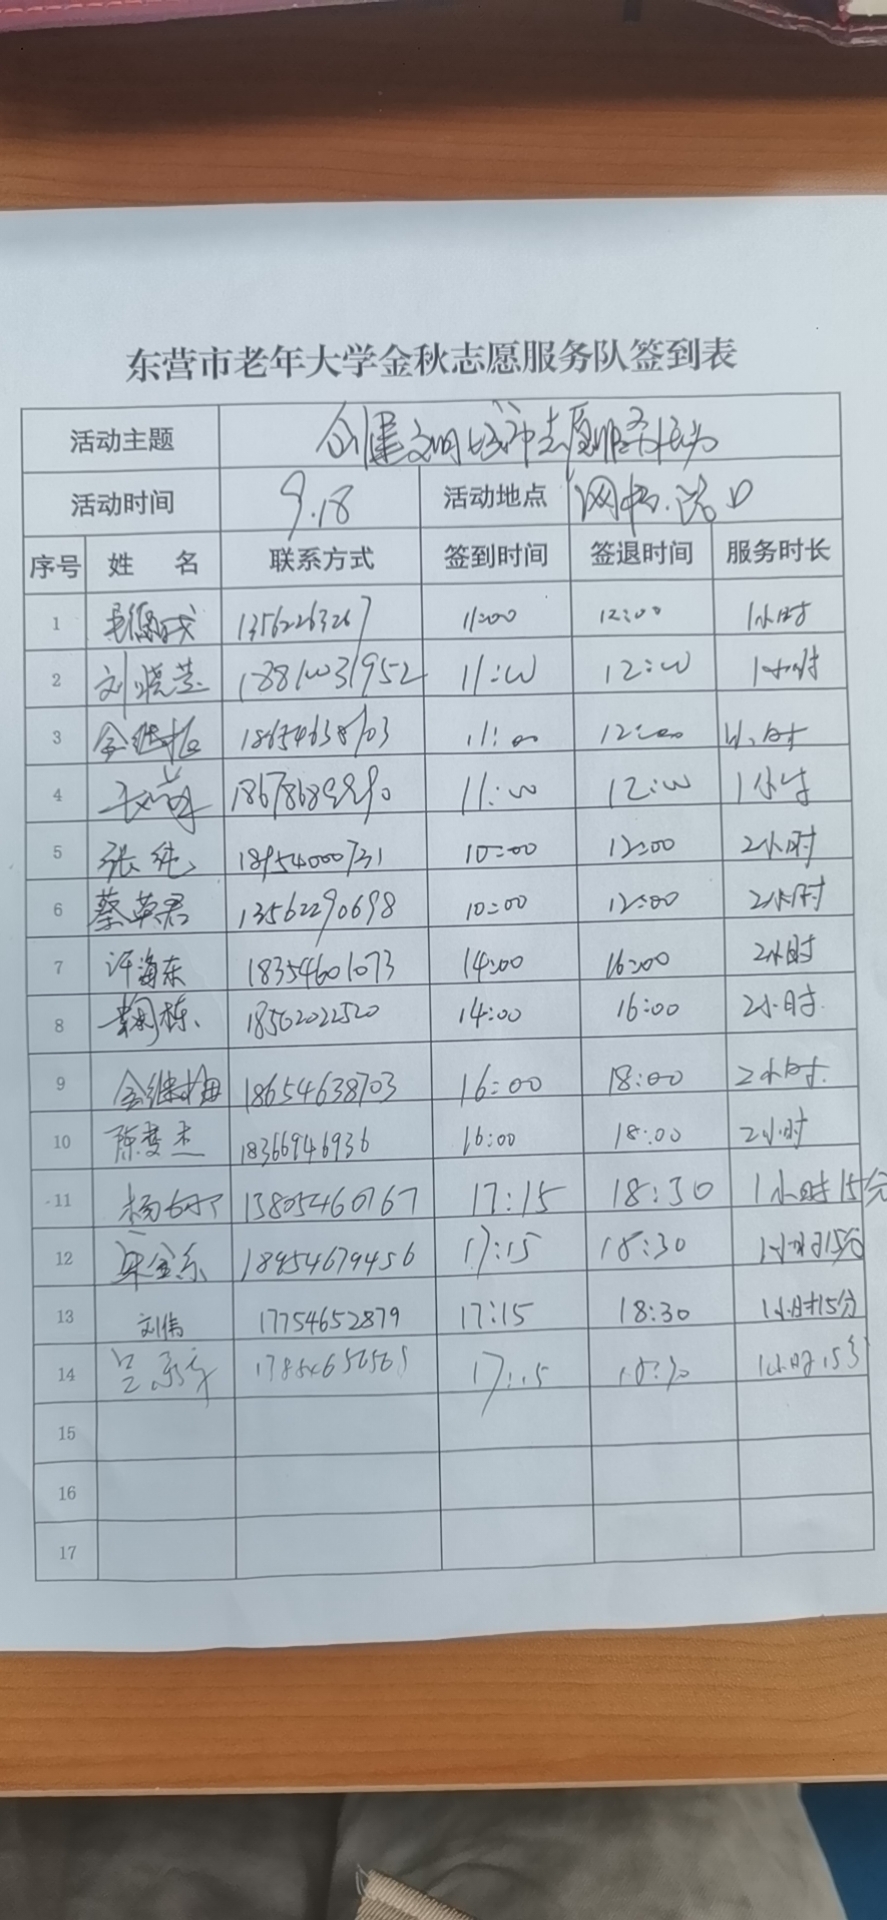 东营市老年大学金秋志愿服务队签到表
活动主题 创建文明城市志愿服务活动
活动时间 9.18 活动地点 路口
序号 姓 名 联系方式 签到时间 签退时间 服务时长
1 13562263267 11:00 12:00 1小时
2 刘晓芸 18810031952 11:00 12:00 1小时
3 金继梅 18654638703 11:00 12:00 1小时
4 11:00 12:00 1小时
5 张纯 18954000731 10:00 12:00 2小时
6 蔡草君 13562290698 10:00 12:00 2小时
7 许海东 18354601073 14:00 16:00 2小时
8 鞠栋 18562022520 14:00 16:00 2小时
9 金继梅 18654638703 16:00 18:00 2小时
10 陈梦杰 18366946936 16:00 18:00 2小时
11 杨 13805460767 17:15 18:30 1小时15分
12 18954679456 17:15 18:30 1小时15分
13 刘伟 17754652879 17:15 18:30 1小时15分
14 17:15 18:30 1小时15分
15
16
17